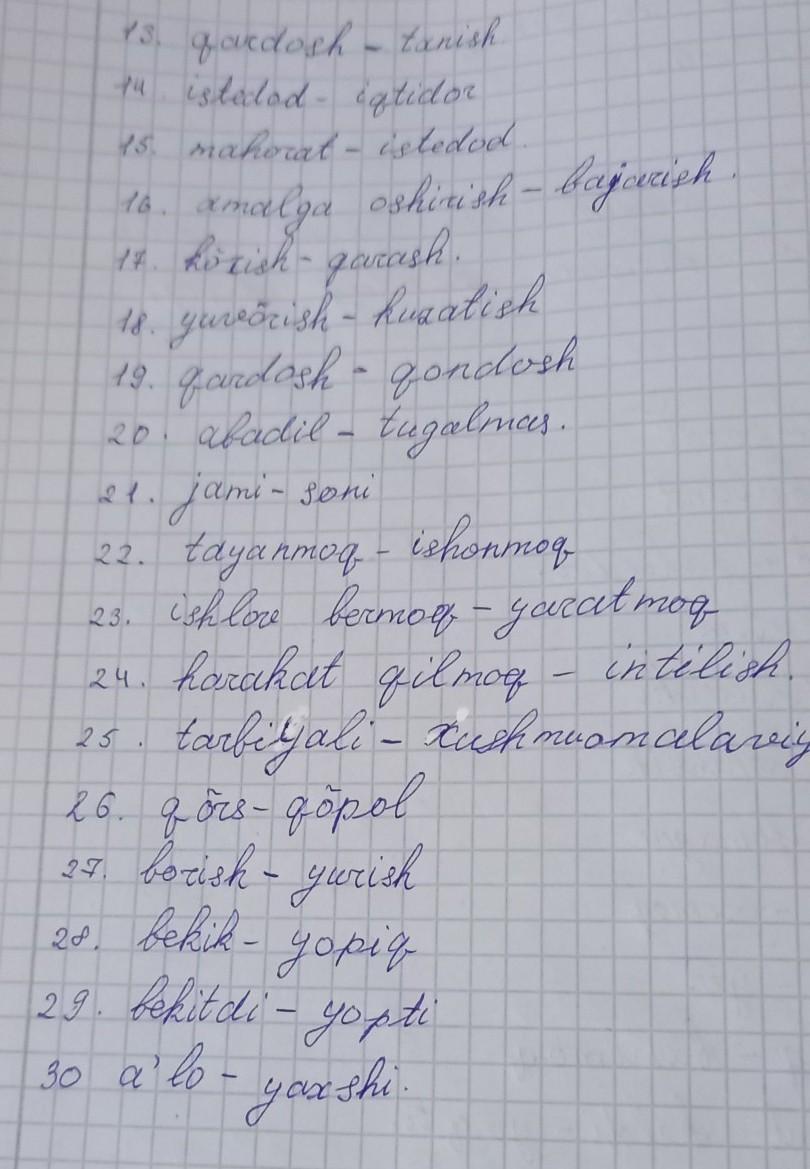 13. qardosh - tanish
14 istedod - iqtidor
15. mahorat - istedod.
16. amalga oshirish - bajarish.
17. kõrish - qarash.
18. yuvõrish - kuzatish
19. qardosh - qondosh
20. abadil - tugalmas.
21. jami - soni
22. tayanmoq - ishonmoq
23. ishlov bermoq - yaratmoq
24. harakat qilmoq - intilish.
25. tarbiyali - xushmuomalaviy
26. qõrs - qõpol
27. borish - yurish
28. bekik - yopiq
29. bekitdi - yopti
30 a'lo - yaxshi.